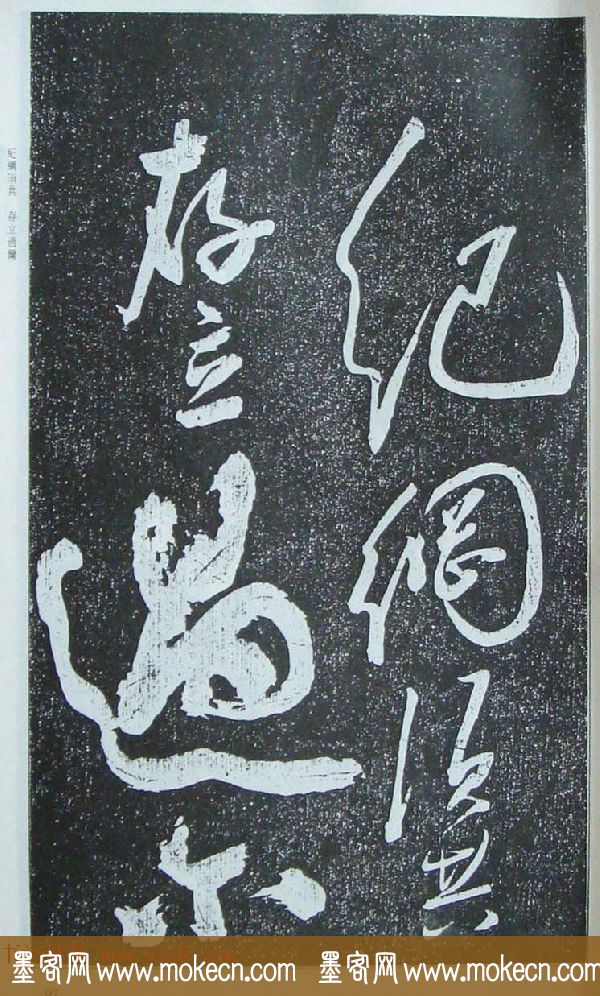 紀綱須共
存立過爾
紀綱須共 存立過爾
97
墨客网 www.mokecn.com 墨客网 www.mokecn.com